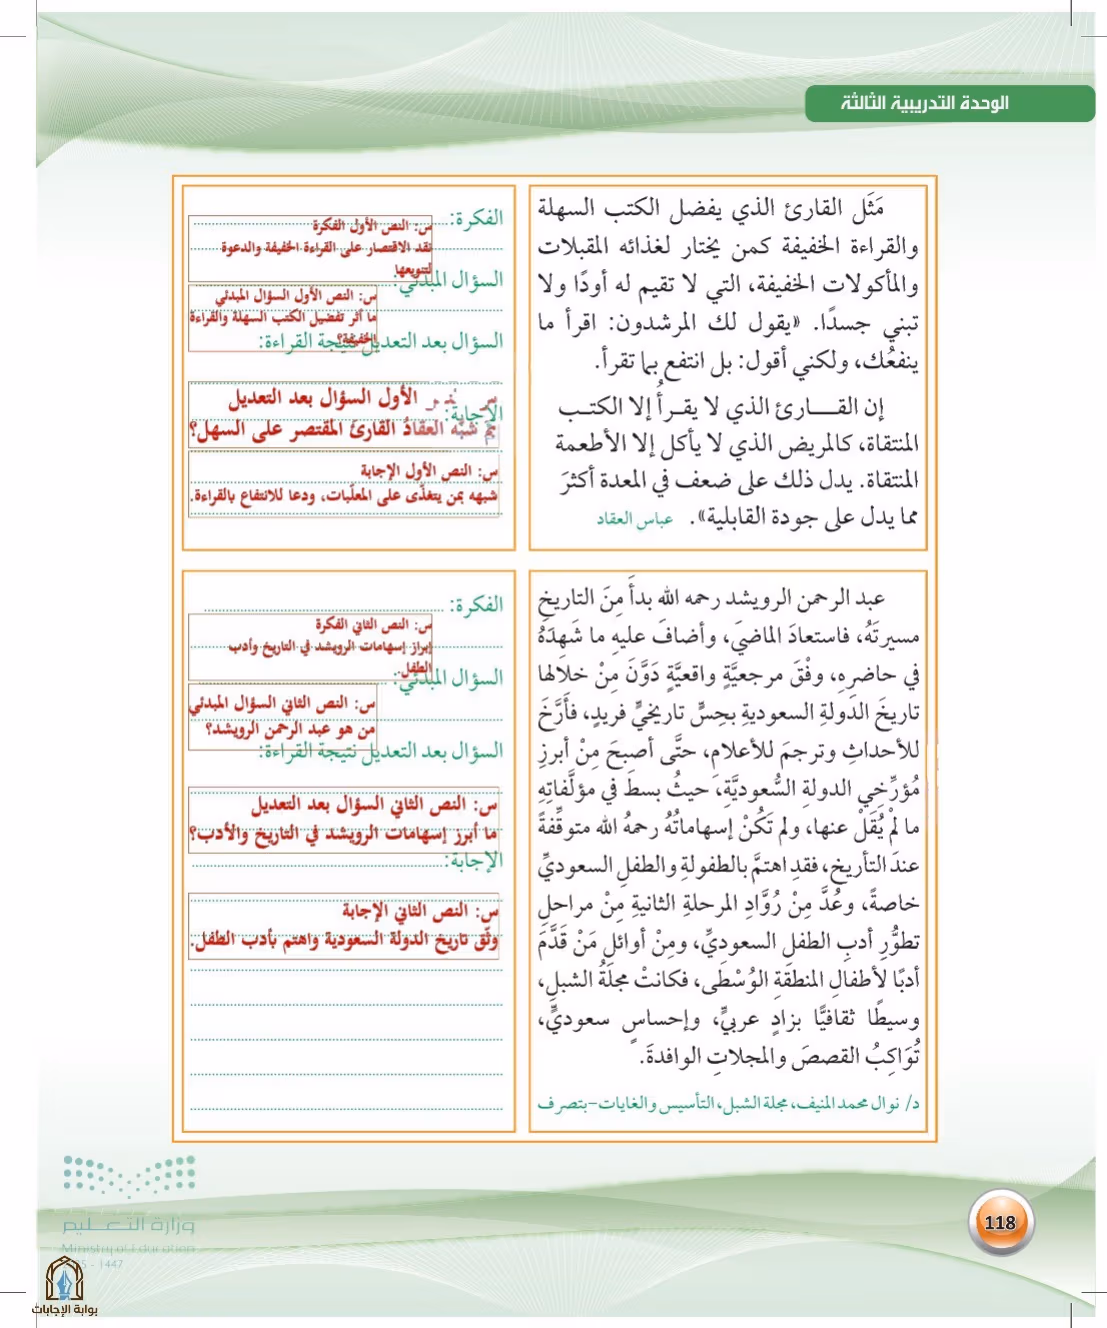 الوحدة التدريبية الثالثة
مَثَل القارئ الذي يفضل الكتب السهلة
والقراءة الخفيفة كمن يختار لغذائه المقبلات
والمأكولات الخفيفة، التي لا تقيم له أودًا ولا
تبني جسدًا. «يقول لك المرشدون: اقرأ ما
ينفعُك، ولكني أقول: بل انتفع بما تقرأ.
إن القـــارئ الذي لا يقـرأُ إلا الكتـب
المنتقاة، كالمريض الذي لا يأكل إلا الأطعمة
المنتقاة. يدل ذلك على ضعف في المعدة أكثرَ
مما يدل على جودة القابلية». عباس العقاد
الفكرة:
س: النص الأول الفكرة
نقد الاقتصار على القراءة الخفيفة والدعوة
لتنويعها
السؤال المبدئي:
س: النص الأول السؤال المبدئي
ما أثر تفضيل الكتب السهلة والقراءة
الخفيفة؟
السؤال بعد التعديل نتيجة القراءة:
الأول السؤال بعد التعديل
الإجابة:
شبّه العقادُ القارئ المقتصر على السهل؟
س: النص الأول الإجابة
شبهه بمن يتغذّى على المعلّبات، ودعا للانتفاع بالقراءة.
عبد الرحمن الرويشد رحمه الله بدأَ مِنَ التاريخِ
مسيرتَهُ، فاستعادَ الماضيَ، وأضافَ عليهِ ما شَهِدَهُ
في حاضرِهِ، وفْقَ مرجعيَّةٍ واقعيَّةٍ دَوَّنَ مِنْ خلالها
تاريخَ الدولةِ السعوديةِ بحِسٍّ تاريخيٍّ فريدٍ، فأَرَّخَ
للأحداثِ وترجمَ للأعلامِ، حتَّى أصبحَ مِنْ أبرزِ
مُؤرِّخِي الدولةِ السُّعوديَّةِ، حيثُ بسطَ في مؤلَّفاتِهِ
ما لمْ يُقَلْ عنها، ولم تَكُنْ إسهاماتُهُ رحمهُ الله متوقِّفةً
عندَ التأريخِ، فقدِ اهتمَّ بالطفولةِ والطفلِ السعوديِّ
خاصةً، وعُدَّ مِنْ رُوَّادِ المرحلةِ الثانيةِ مِنْ مراحلِ
تطوُّرِ أدبِ الطفلِ السعوديِّ، ومِنْ أوائلِ مَنْ قَدَّمَ
أدبًا لأطفالِ المنطقَةِ الوُسْطَى، فكانتْ مجلةُ الشبلِ،
وسيطًا ثقافيًّا بزادٍ عربيٍّ، وإحساسٍ سعوديٍّ،
تُوَاكِبُ القصصَ والمجلاتِ الوافدةَ.
د/ نوال محمد المنيف، مجلة الشبل، التأسيس والغايات-بتصرف
الفكرة:
س: النص الثاني الفكرة
إبراز إسهامات الرويشد في التاريخ وأدب
الطفل.
السؤال المبدئي:
س: النص الثاني السؤال المبدئي
من هو عبد الرحمن الرويشد؟
السؤال بعد التعديل نتيجة القراءة:
س: النص الثاني السؤال بعد التعديل
ما أبرز إسهامات الرويشد في التاريخ والأدب؟
الإجابة:
س: النص الثاني الإجابة
وثّق تاريخ الدولة السعودية واهتم بأدب الطفل.
وزارة التعليم
Ministry of Education
- 1447
118
بوابة الإجابات